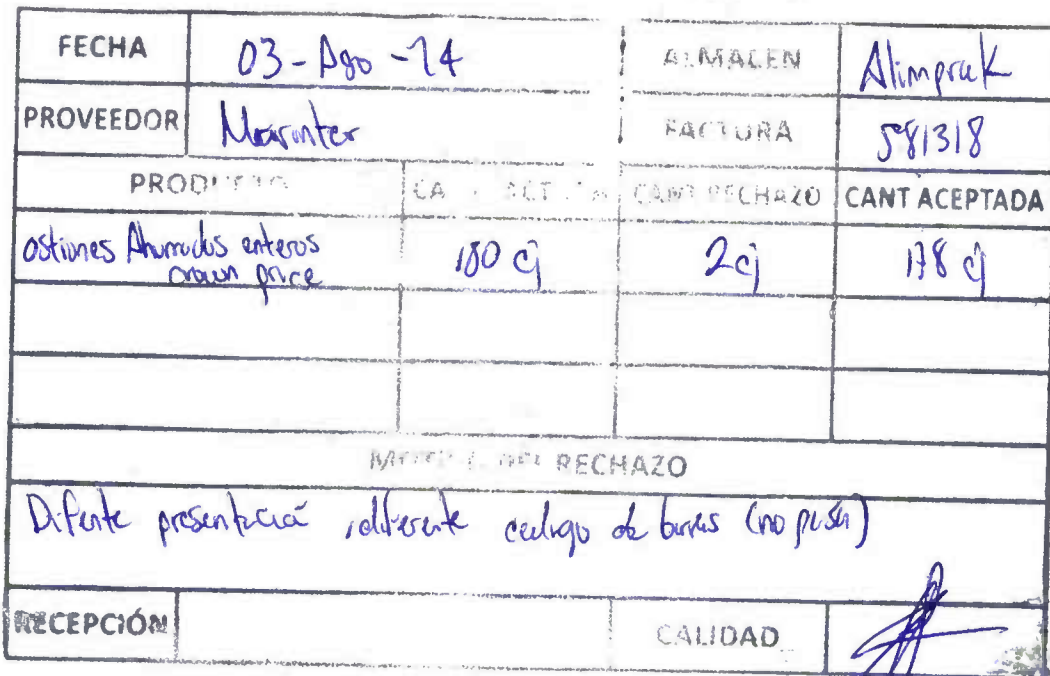 FECHA 03-Ago-14 ALMACEN Alimprak
PROVEEDOR Marinter FACTURA 581318
PRODUCTO CANT RECHAZO CANT ACEPTADA
ostiones Ahumados enteros 180 cj 2 cj 178 cj
crown price
DEL RECHAZO
Difente presentació, diferente codigo de barras (no pasa)
RECEPCIÓN CALIDAD